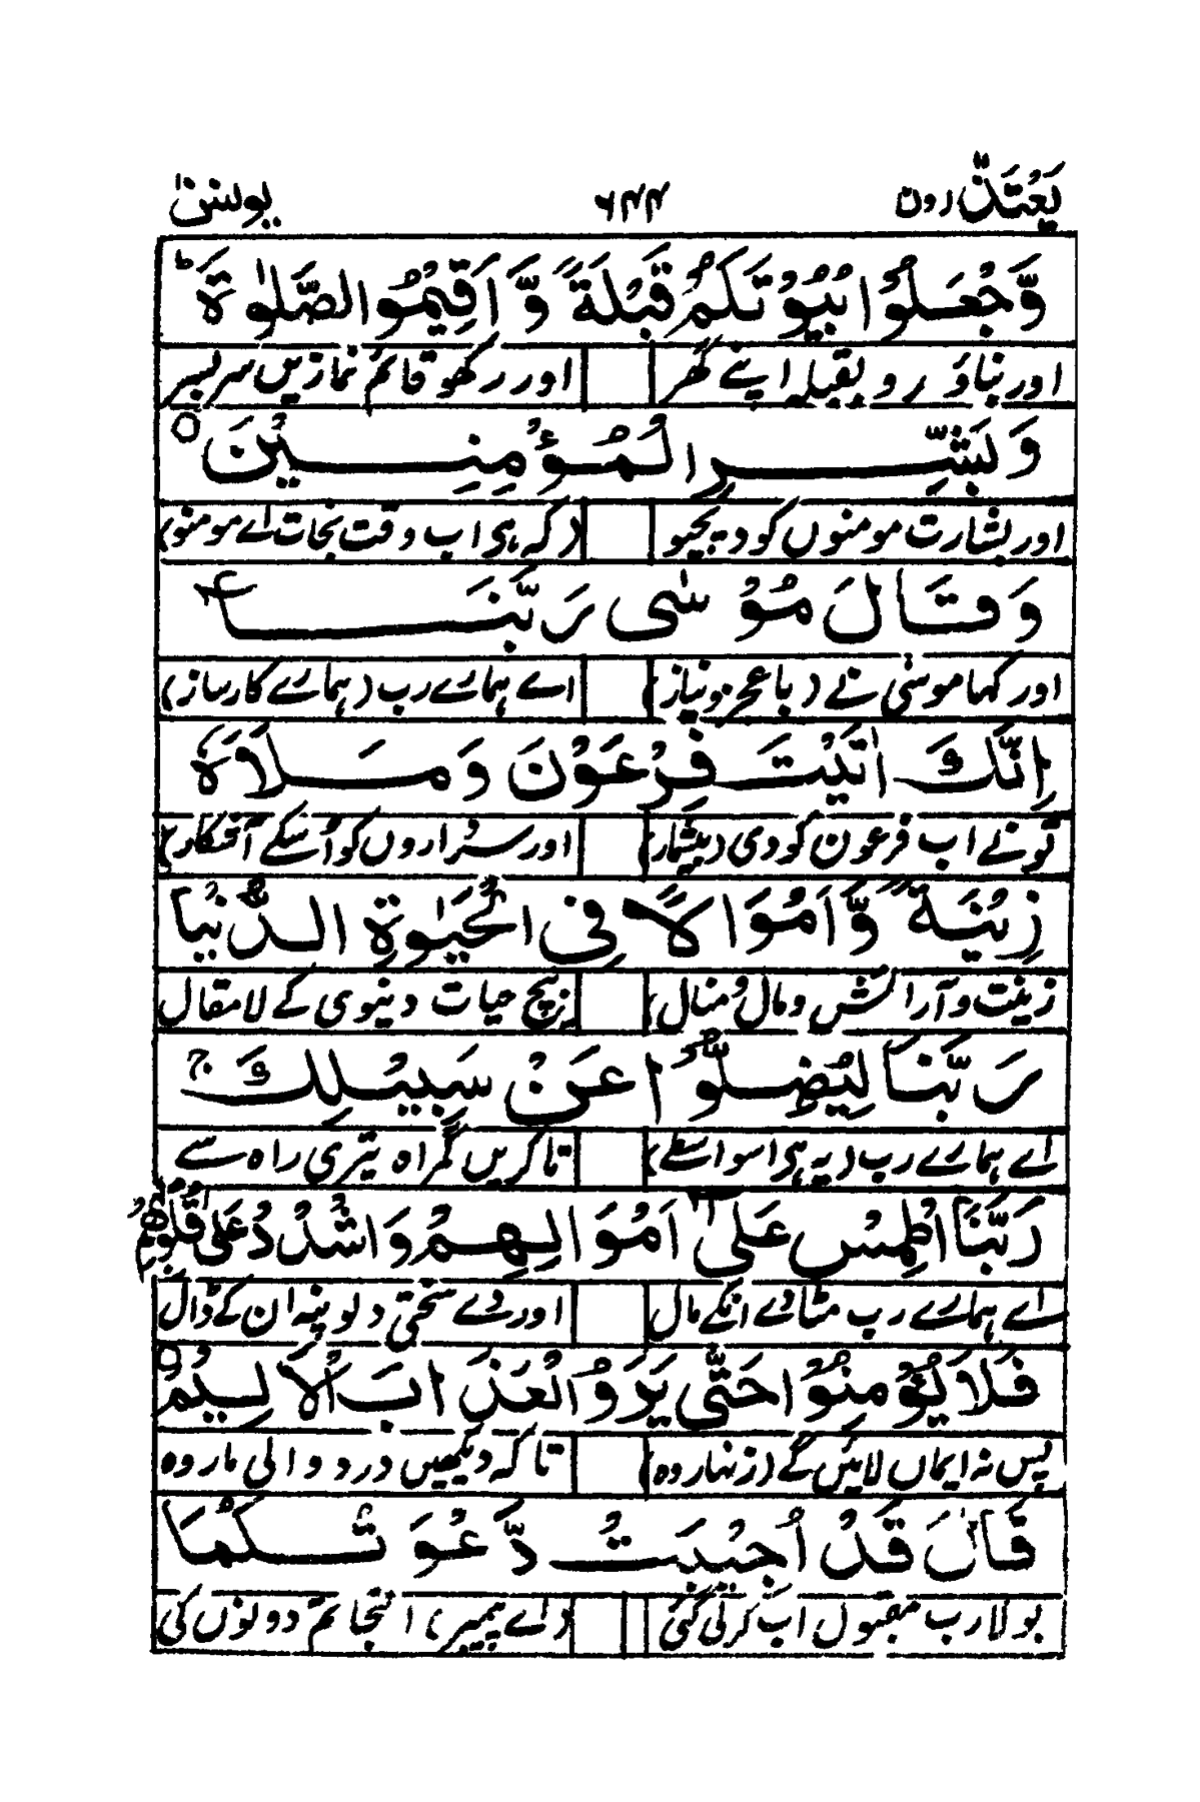 یَعْتَذِرُوْنَ ۶۴۴ یونس
وَّاجْعَلُوْا بُیُوْتَكُمْ قِبْلَةً وَّاَقِیْمُوا الصَّلٰوةَ ؕ
اور بناؤ رو بقبلہ اپنے گھر اور رکھو قائم نمازیں سربسر
وَ بَشِّرِ الْمُؤْمِنِیْنَ ○
اور بشارت مومنوں کو دیجیو (کہ ہی اب وقت نجات اے مومنو)
وَ قَالَ مُوْسٰى رَبَّنَا
اور کہا موسٰی نے (با عجز و نیاز) اے ہمارے رب (ہمارے کارساز)
اِنَّكَ اٰتَیْتَ فِرْعَوْنَ وَ مَلَاَهٗ
تونے اب فرعون کو دی (بیشمار) اور سرداروں کو اُسکے آشکار)
زِیْنَةً وَّ اَمْوَالًا فِی الْحَیٰوةِ الدُّنْیَا
زینت و آرائش و مال و منال) بیچ حیات دنیوی کے لامقال
رَبَّنَا لِیُضِلُّوْا عَنْ سَبِیْلِكَ ۚ
اے ہمارے رب (یہ ہی اسواسطے) تا کریں گمراہ تیری راہ سے
رَبَّنَا اطْمِسْ عَلٰۤى اَمْوَالِهِمْ وَ اشْدُدْ عَلٰى قُلُوْبِهِمْ
اے ہمارے رب مٹا دے انکے مال اور دے سختی دلو پنہ ان کے ڈال
فَلَا یُؤْمِنُوْا حَتّٰى یَرَوُا الْعَذَابَ الْاَلِیْمَ ○
پس نہ ایماں لائیں گے (زنہار وہ) تا کہ دیکھیں درد والی مار وہ
قَالَ قَدْ اُجِیْبَتْ دَّعْوَتُكُمَا
بولا رب مقبول اب کرلی گئی (اے پیمبر) التجا تم دونوں کی